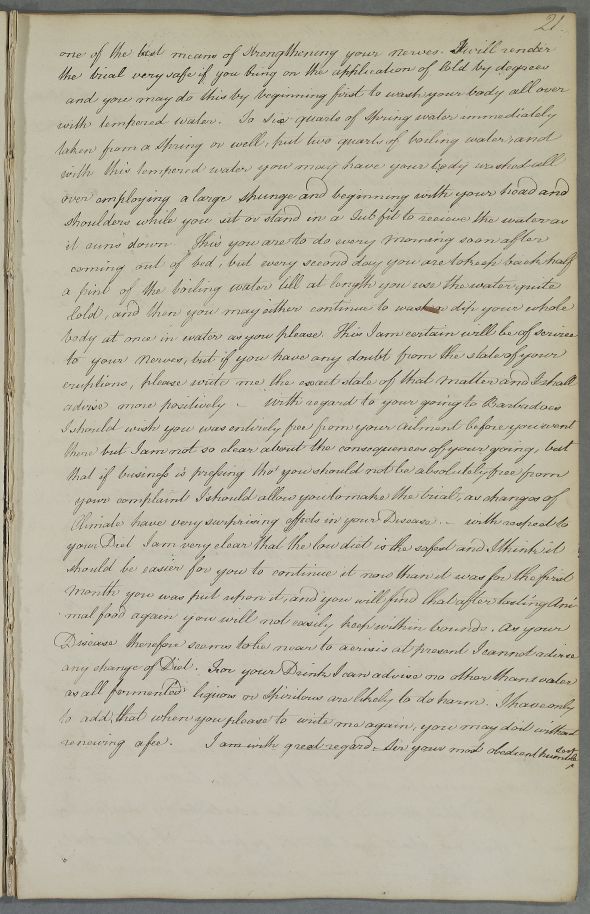 21.
one of the best means of strengthening your nerves. It will render
the trial very safe if you bring on the application of Cold by degrees
and you may do this by beginning first to wash your body all over
with tempered water. To Six quarts of Spring water immediately
taken from a Spring or well, put two quarts of boiling water, and
with this tempered water you may have your body washed all
over employing a large Spunge and beginning with your head and
shoulders while you sit or stand in a Tub fit to recieve the water as
it runs down. This you are to do every morning soon after
coming out of bed, but every second day you are to keep back half
a pint of the boiling water till at length you use the water quite
Cold, and then you may either continue to wash or dip your whole
body at once in water as you please. This I am certain will be of service
to your nerves, but if you have any doubt from the state of your
eruptions, please write me the exact state of that matter and I shall
advise more positively. - With regard to your going to Barbadoes
I should wish you was entirely free from your ailment before you went
there but I am not so clear about the consequences of your going, but
that if business is pressing tho' you should not be absolutely free from
your complaint I should allow you to make the trial, as changes of
Climate have very surprising effects in your Disease. - with respect to
your Diet I am very clear that the low diet is the safest and I think it
should be easier for you to continue it now than it was for the first
month you was put upon it, and you will find that after tasting Ani
mal food again you will not easily keep within bounds. As your
Disease therefore seems to be near to a crisis at present I cannot advise
any change of Diet. For your Drink I can advise no other than water
as all fermented liquors or Spiritous are likely to do harm. I have only
to add, that when you please to write me again, you may do it without
renewing a fee. I am with great regard - Sir your most obedient humble Servt